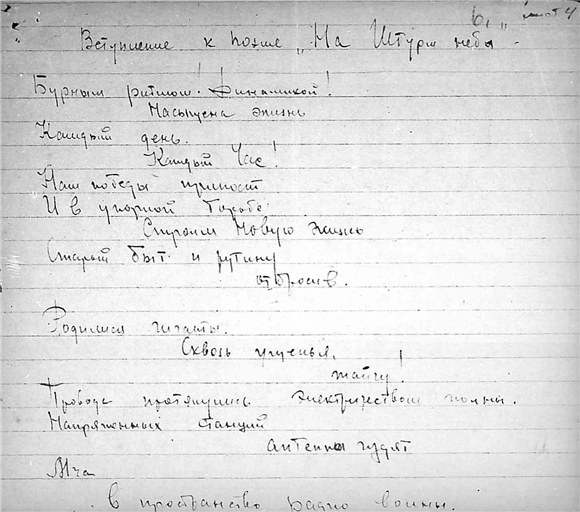 6. лист 4
Вступление к поэме „На Штурм неба".
Бурным ритмом! Динамикой!
Насыщена жизнь
Каждый день.
Каждый Час!
Нам победы приносит
И в упорной борьбе
Строим Новую жизнь
Старый быт и рутину
отбросив.
Родились гиганты.
Сквозь ущелья,
тайгу!
Провода протянулись Электричеством полны.
Напряженных станций
антенны гудят
Мча
в пространство радио волны.